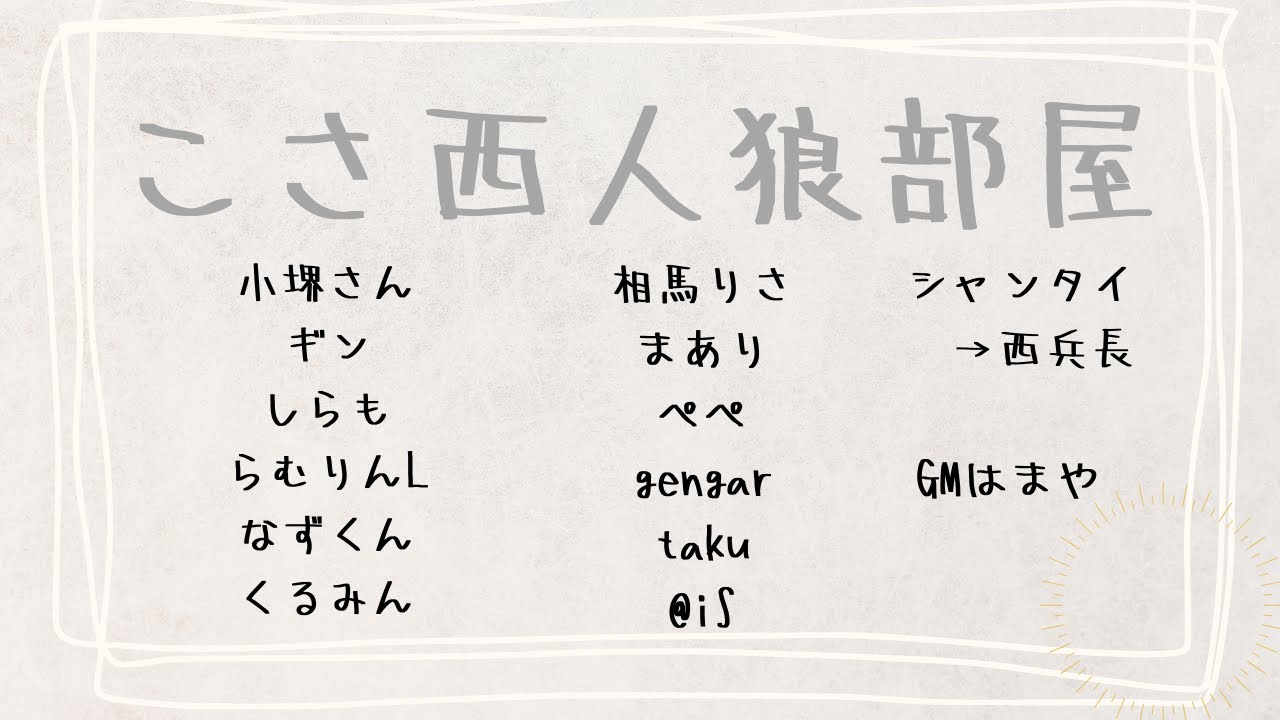 こさ西人狼部屋
小堺さん
ギン
しらも
らむりんL
なずくん
くるみん
相馬りさ
まあり
ペペ
gengar
taku
@iS
シャンタイ
→西兵長
GMはまや